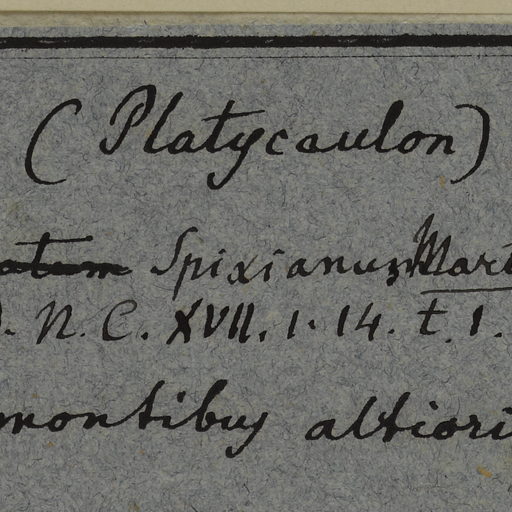 (Platycaulon)
Spixianus Mart
. N. C. XVII. 1. 14. t. 1.
montibus altiori